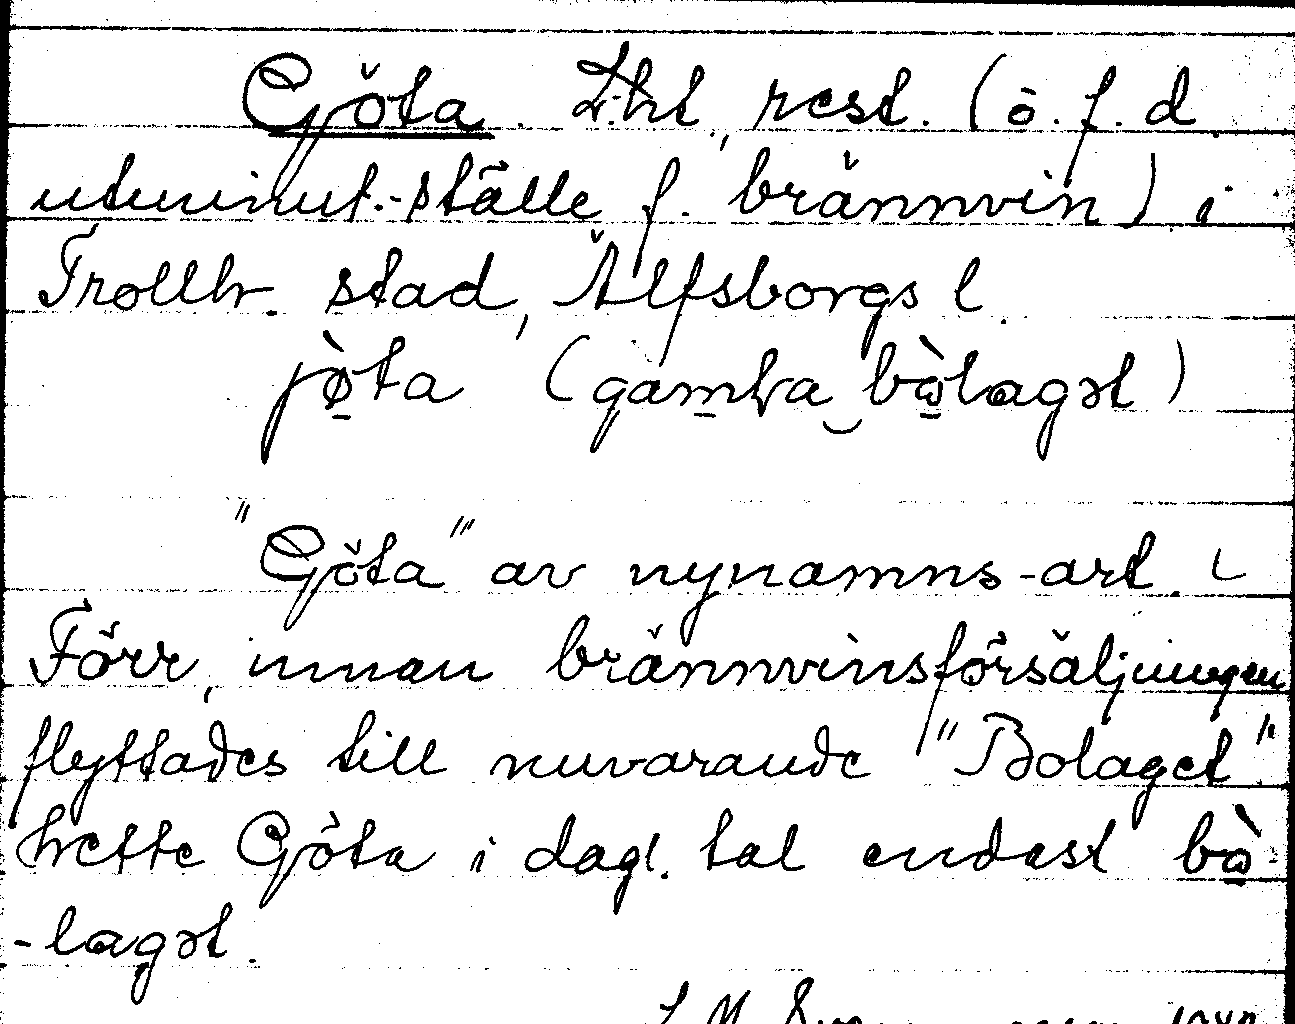 Göta. Lht, rest. (o. f. d.
utminut.-ställe f. brännvin) i
Trollh. stad, Älfsborgs l.
jø̀ta (gamɫa‿bòlagət)
"Göta" av nynamns-art.
Förr, innan brännvinsförsäljningen
flyttades till nuvarande "Bolaget"
hette Göta i dagl. tal endast bò-
-lagət.